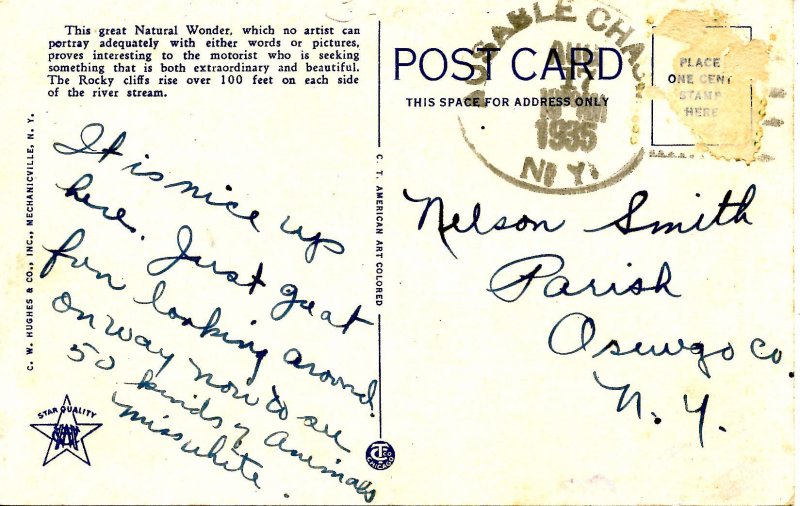 This great Natural Wonder, which no artist can
portray adequately with either words or pictures,
proves interesting to the motorist who is seeking
something that is both extraordinary and beautiful.
The Rocky cliffs rise over 100 feet on each side
of the river stream.
C. W. HUGHES & CO., INC., MECHANICVILLE, N. Y.
It is nice up
here. Just great
fun looking around.
On way now to see
50 kinds of animals
Miss White.
STAR QUALITY
C. T. AMERICAN ART COLORED
CTCO
CHICAGO
POST CARD
THIS SPACE FOR ADDRESS ONLY
AUSABLE CHAS
17
1935
N.Y.
PLACE
ONE CENT
STAMP
HERE
Nelson Smith
Parish
Osewgo Co.
N. Y.